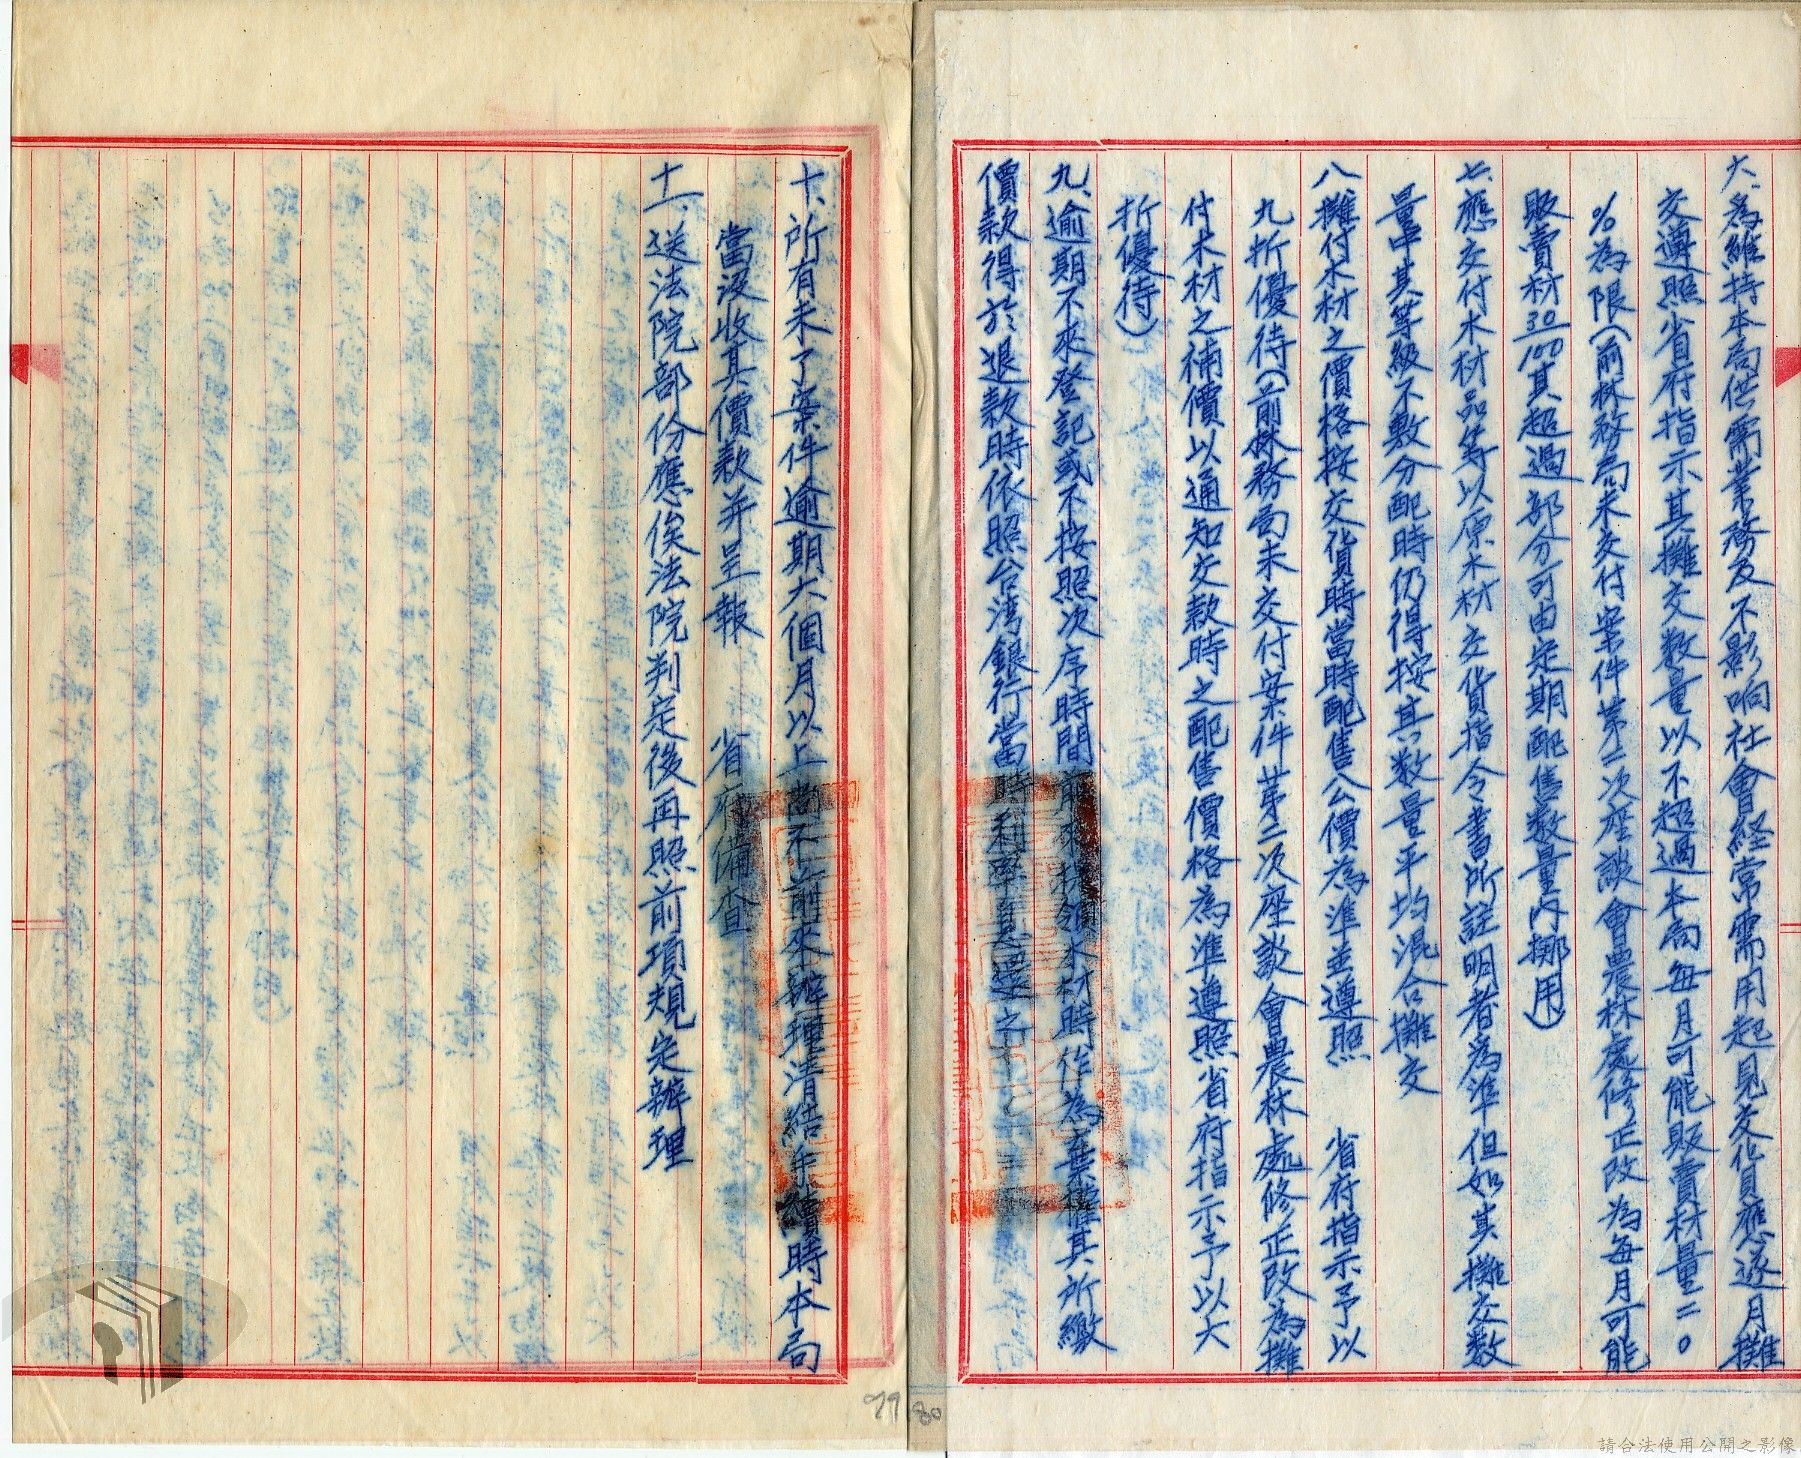 六、為維持本局供需業務及不影响社會経常需用起見交貨應逐月攤
交遵照省府指示其攤交数量以不超過本局每月可能販賣材量二〇
％為限（前林務局未交付案件第二次座談會農林處修正改為每月可能
販賣材30/100其超過部分可由定期配售数量內挪用）
七、應交付木材品等以原木材交貨指令書所註明者為準但如其攤交数
量中其等級不敷分配時仍得按其数量平均混合攤交
八、攤付木材之價格按交貨時當時配售公價為準並遵照 省府指示予以
九折優待（前林務局未交付案件第二次座談會農林處修正改為攤
付木材之補價以通知交款時之配售價格為準遵照省府指示予以六
折優待）
九、逾期不來登記或不按照次序時間前來提領木材時作為棄權其所繳
價款得於退款時依照台湾銀行當時利率息還之
十、所有未了案件逾期六個月以上尚不前來辦理清結手續時本局
當沒收其價款并呈報 省府備查
十一、送法院部份應俟法院判定後再照前項規定辦理
79
80
請合法使用公開之影像